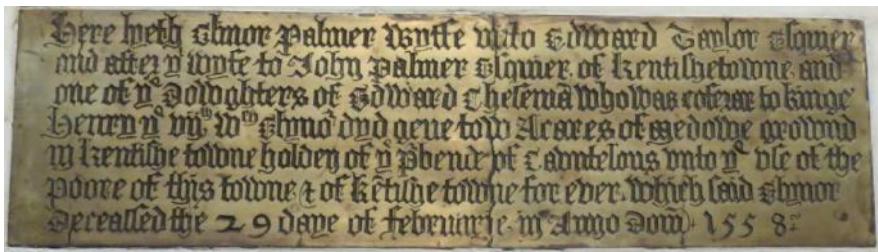 Here lyeth Elinor Palmer wyffe unto Edward Taylor Esquier
and after yͤ wyfe to John Palmer Esquier, of Kentishetowne, and
one of yͤ Dowghters of Edward Chesemā who was coferar to kinge
Henry yͤ vijᵗʰ wᶜʰ Elynoʳ dyd geve tow Acares of medowe grownd
in Kentishe towne holden of yͤ p̄bend of Cantelous vnto yͤ vse of the
poore of this towne & of Kētishe towne for ever, which said Elynor
Deceassed the 29 daye of februarie, in Anno Dom̄ 1558